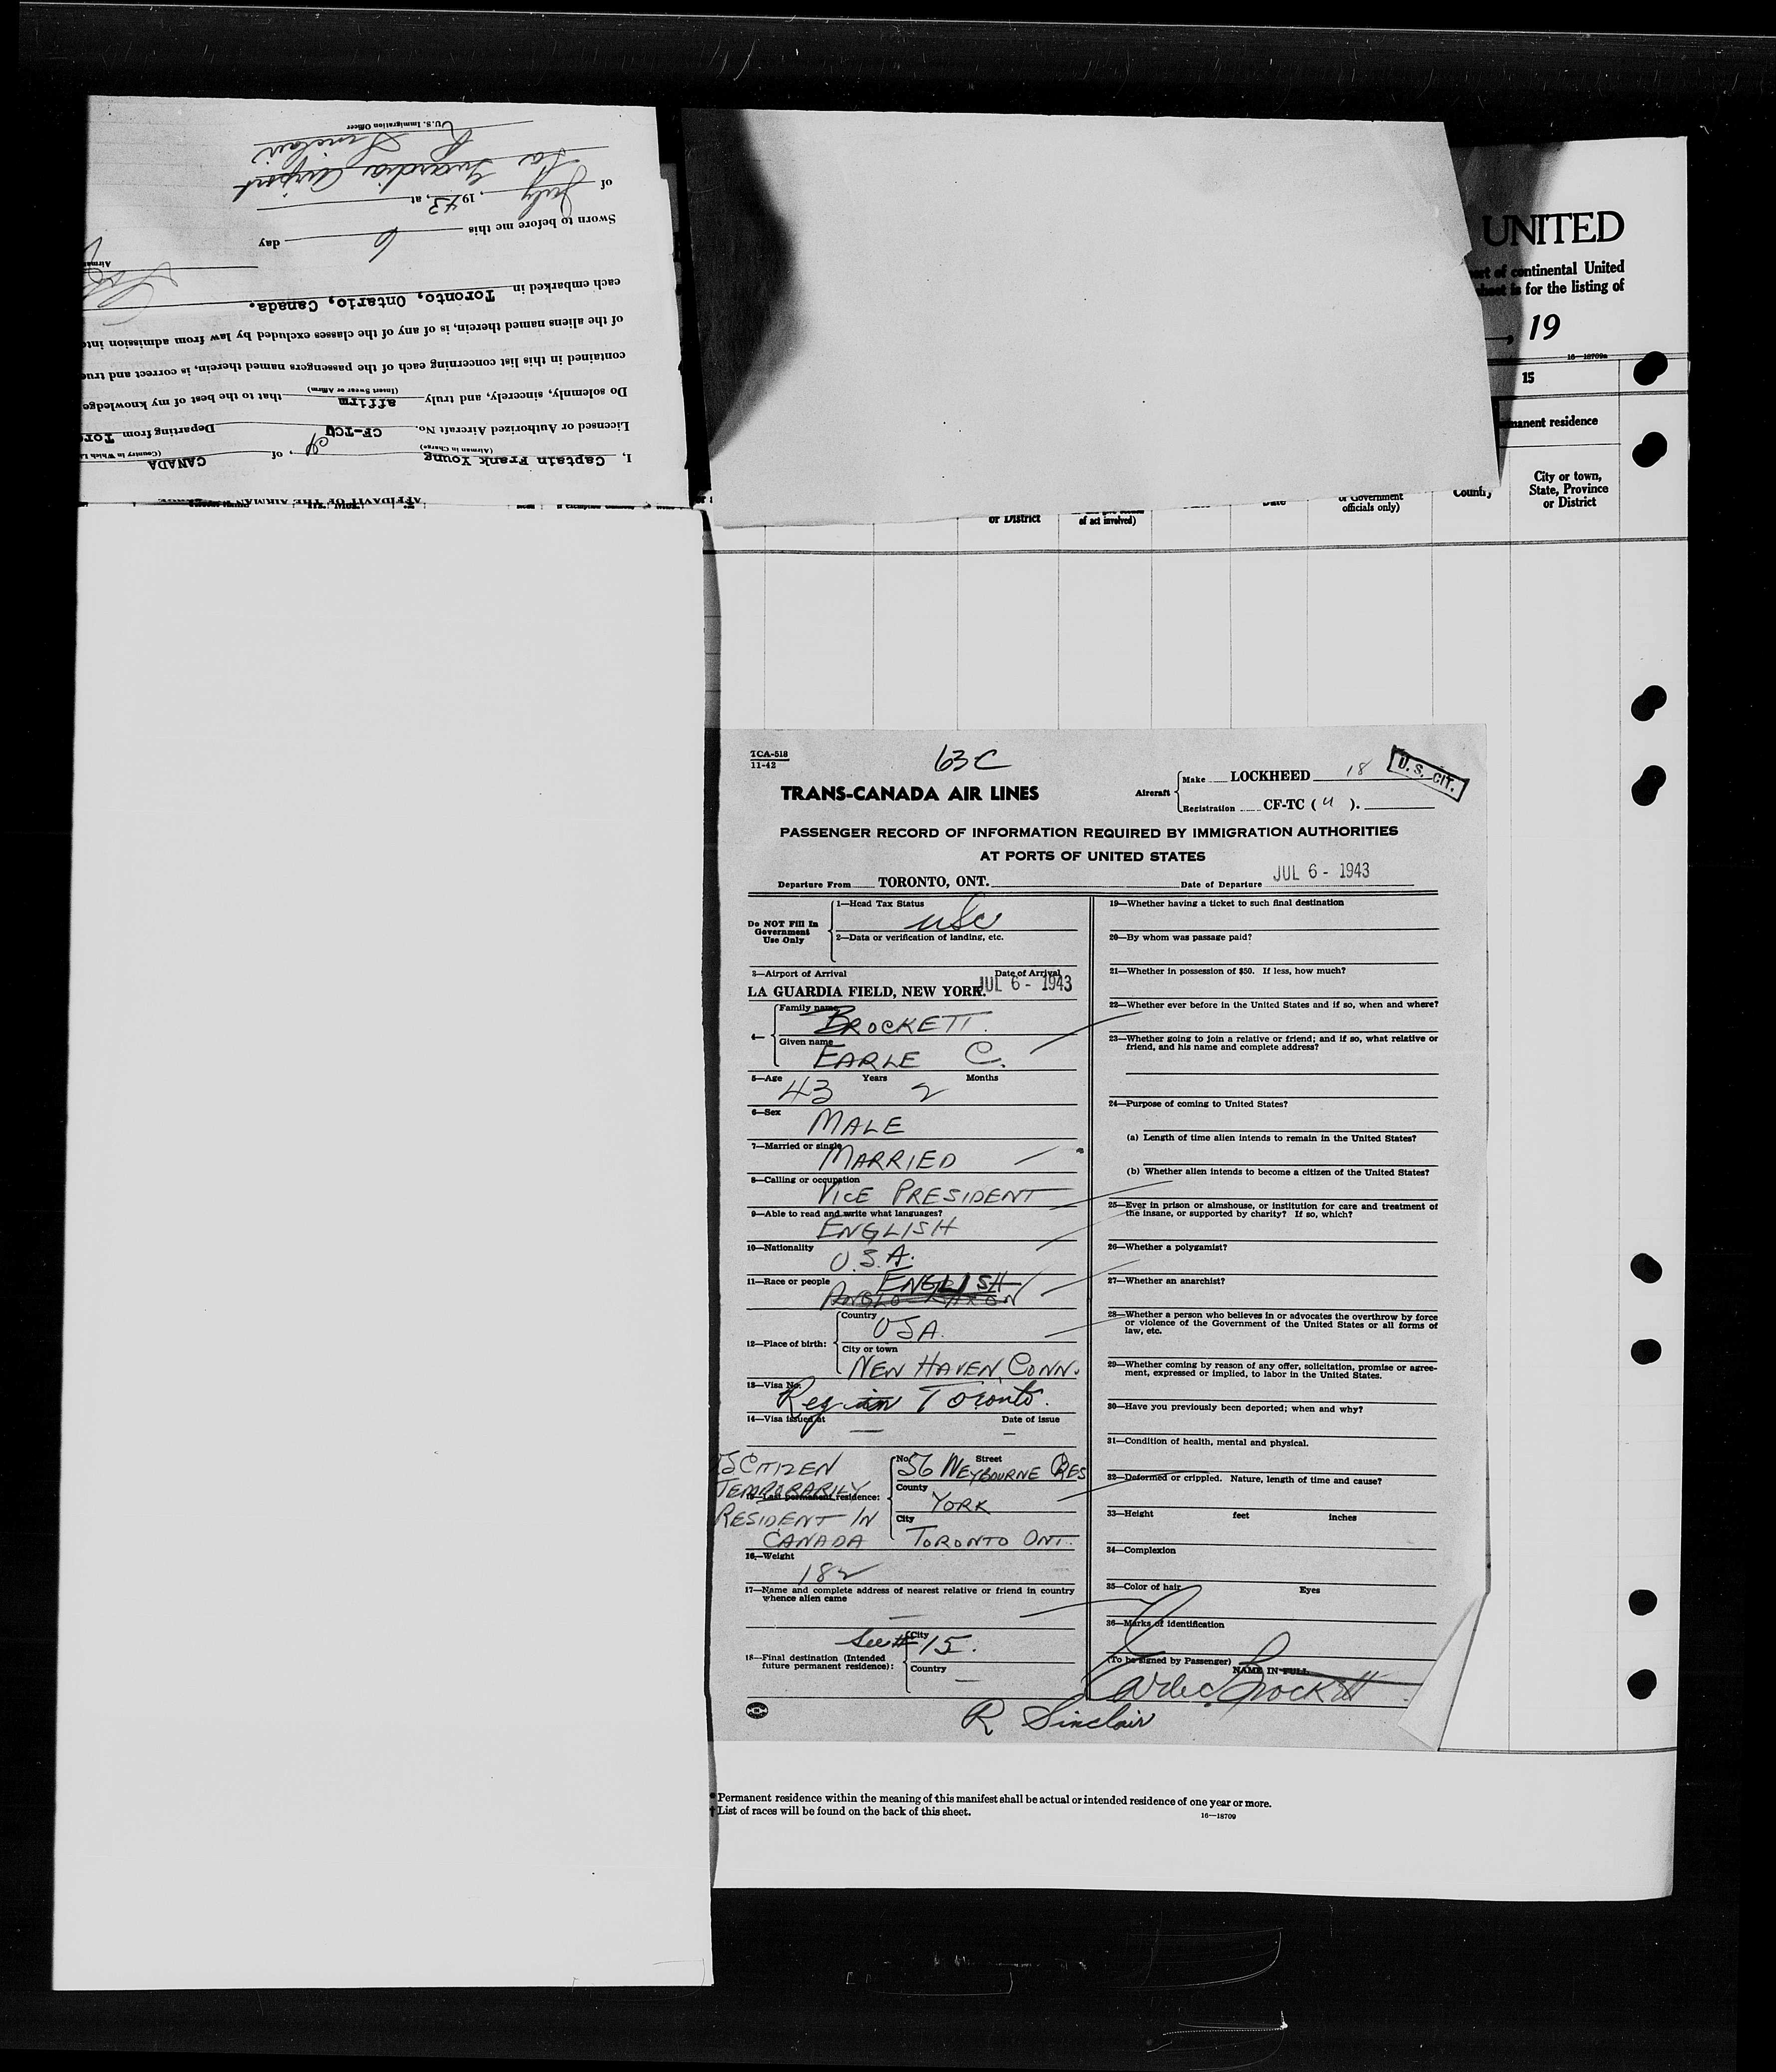 U.S. Immigration Officer
R Sinclair
La Guardia Airport
of July, 1943, at
Sworn to before me this 6 day
Airman
each embarked in Toronto, Ontario, Canada.
of the aliens named therein, is of any of the classes excluded by law from admission into
contained in this list concerning each of the passengers named therein, is correct and true
(Insert Swear or Affirm)
Do solemnly, sincerely, and truly affirm that to the best of my knowledge
Licensed or Authorized Aircraft No. CF-TCU Departing from Toro
(Airman in Charge) (Country in Which
I, Captain Frank Young, of CANADA
AFFIDAVIT OF THE AIRMAN
UNITED
of continental United
sheet is for the listing of
, 19
16—18709a
15
permanent residence
or District
of act involved)
Date
or Government
officials only)
Country
City or town,
State, Province
or District
TCA-518
11-42
63C
TRANS-CANADA AIR LINES
Aircraft
Make LOCKHEED 18
Registration CF-TC ( U ).
U. S. CIT.
PASSENGER RECORD OF INFORMATION REQUIRED BY IMMIGRATION AUTHORITIES
AT PORTS OF UNITED STATES
Departure From TORONTO, ONT. Date of Departure JUL 6 - 1943
Do NOT Fill In
Government
Use Only
1—Head Tax Status
usc
2—Data or verification of landing, etc.
3—Airport of Arrival Date of Arrival
LA GUARDIA FIELD, NEW YORK. JUL 6 - 1943
4— Family name
BROCKETT.
Given name
EARLE C.
5—Age 43 Years 2 Months
6—Sex
MALE
7—Married or single
MARRIED
8—Calling or occupation
VICE PRESIDENT
9—Able to read and write what languages?
ENGLISH
10—Nationality
U.S.A.
11—Race or people ENGLISH
ANGLO SAXON
12—Place of birth:
Country
USA.
City or town
NEW HAVEN, CONN.
13—Visa No.
Reg in Toronto.
14—Visa issued at Date of issue
US CITIZEN
TEMPORARILY
15—Last permanent residence:
RESIDENT IN
CANADA
No. Street
56 WEYBOURNE CRES
County
YORK
City
TORONTO ONT.
16—Weight
182
17—Name and complete address of nearest relative or friend in country
whence alien came
18—Final destination (Intended
future permanent residence):
City
See # 15.
Country
19—Whether having a ticket to such final destination
20—By whom was passage paid?
21—Whether in possession of $50. If less, how much?
22—Whether ever before in the United States and if so, when and where?
23—Whether going to join a relative or friend; and if so, what relative or
friend, and his name and complete address?
24—Purpose of coming to United States?
(a) Length of time alien intends to remain in the United States?
(b) Whether alien intends to become a citizen of the United States?
25—Ever in prison or almshouse, or institution for care and treatment of
the insane, or supported by charity? If so, which?
26—Whether a polygamist?
27—Whether an anarchist?
28—Whether a person who believes in or advocates the overthrow by force
or violence of the Government of the United States or all forms of
law, etc.
29—Whether coming by reason of any offer, solicitation, promise or agree-
ment, expressed or implied, to labor in the United States.
30—Have you previously been deported; when and why?
31—Condition of health, mental and physical.
32—Deformed or crippled. Nature, length of time and cause?
33—Height feet inches
34—Complexion
35—Color of hair Eyes
36—Marks of identification
(To be signed by Passenger) NAME IN FULL
Earle C. Brockett
R Sinclair
*Permanent residence within the meaning of this manifest shall be actual or intended residence of one year or more.
†List of races will be found on the back of this sheet.
16—18709